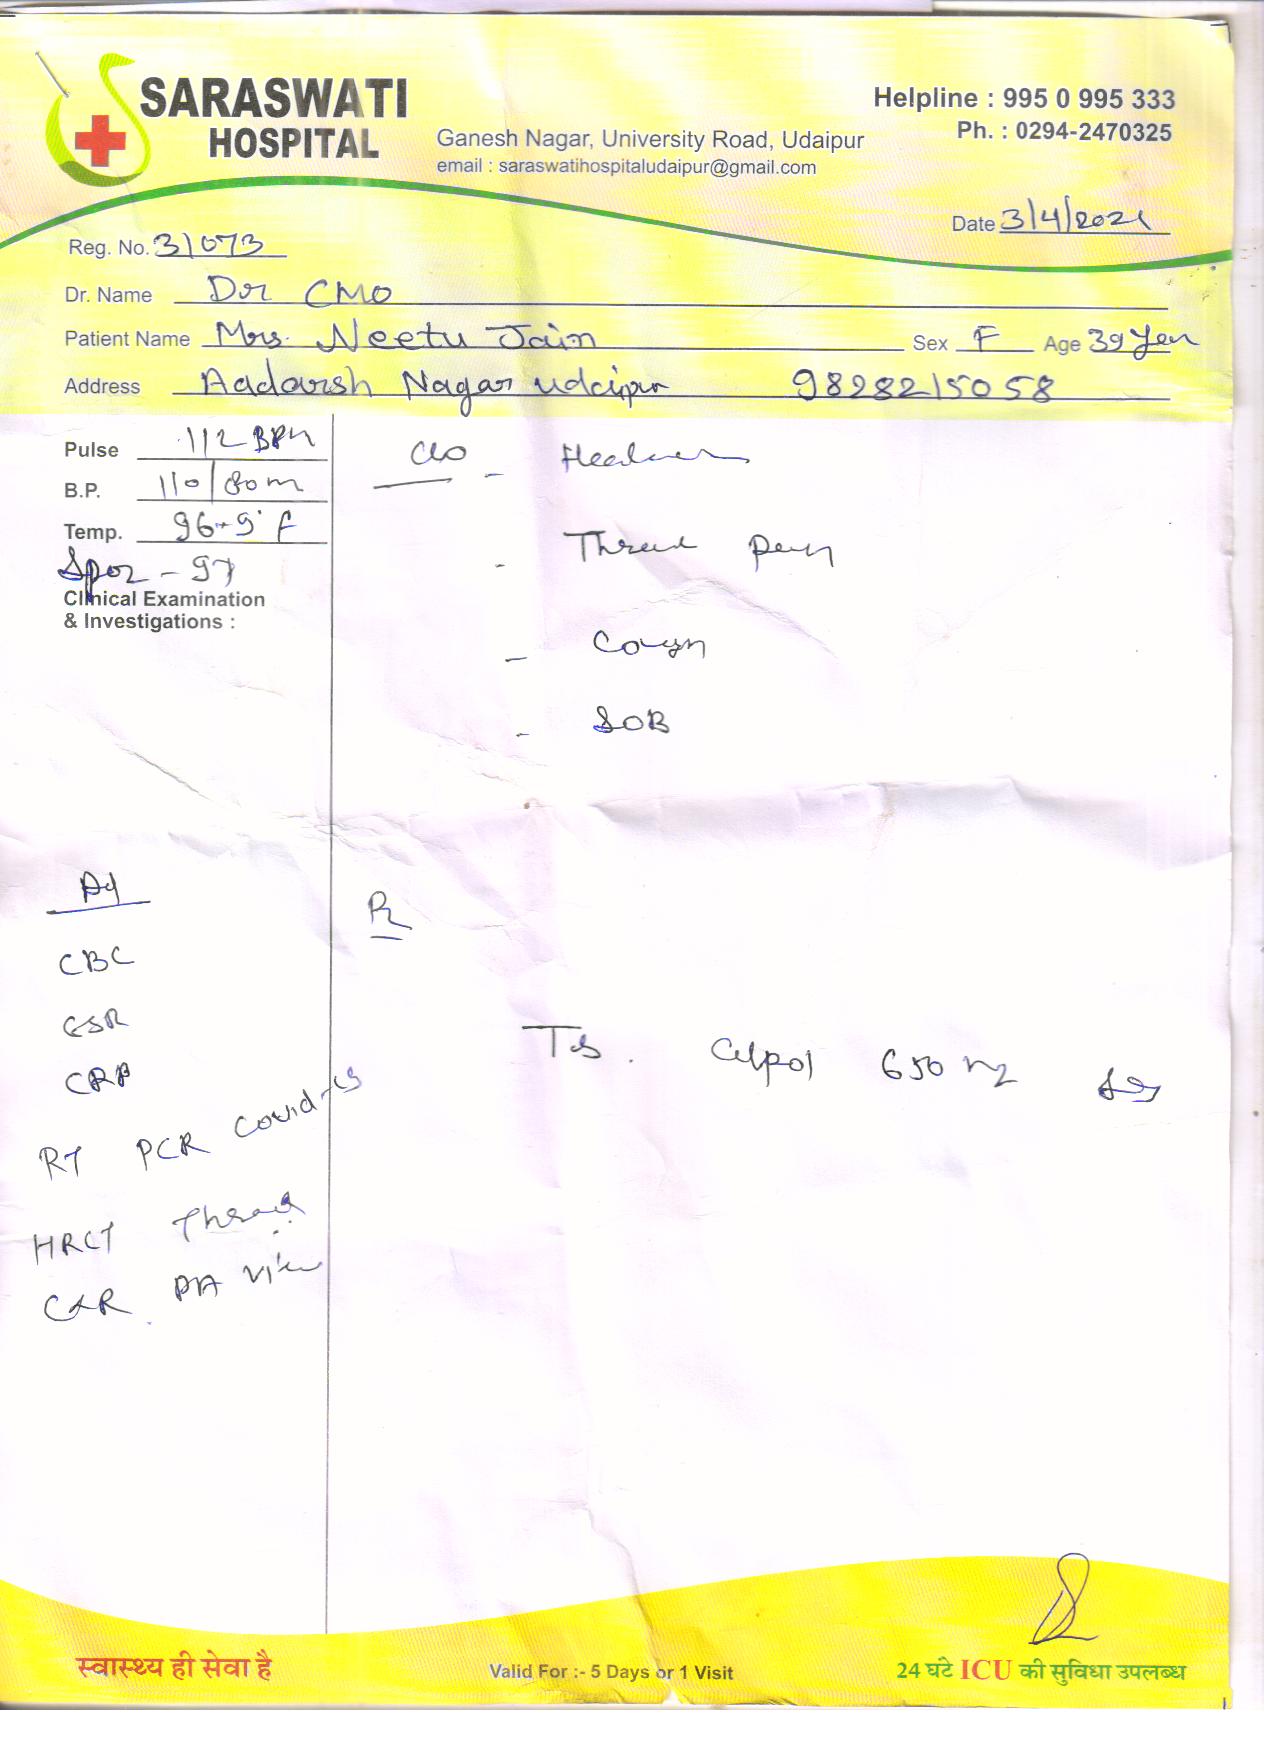 SARASWATI
HOSPITAL
Ganesh Nagar, University Road, Udaipur
email : saraswatihospitaludaipur@gmail.com
Helpline : 995 0 995 333
Ph. : 0294-2470325
Date 3/4/2021
Reg. No. 31073
Dr. Name Dr CMO
Patient Name Mrs. Neetu Jain Sex F Age 39 Year
Address Aadarsh Nagar Udaipur 9828215058
Pulse 112 BPM
B.P. 110/80 m
Temp. 96.9° F
Spo2 - 97
Clinical Examination
& Investigations :
C/o - Headache
- Throat Pain
- Cough
- SOB
Ad
CBC
ESR
CRP
RT PCR Covid-19
HRCT Thorax
CXR PA View
Rx
Tab. Calpol 650 mg
स्वास्थ्य ही सेवा है
Valid For :- 5 Days or 1 Visit
24 घंटे ICU की सुविधा उपलब्ध